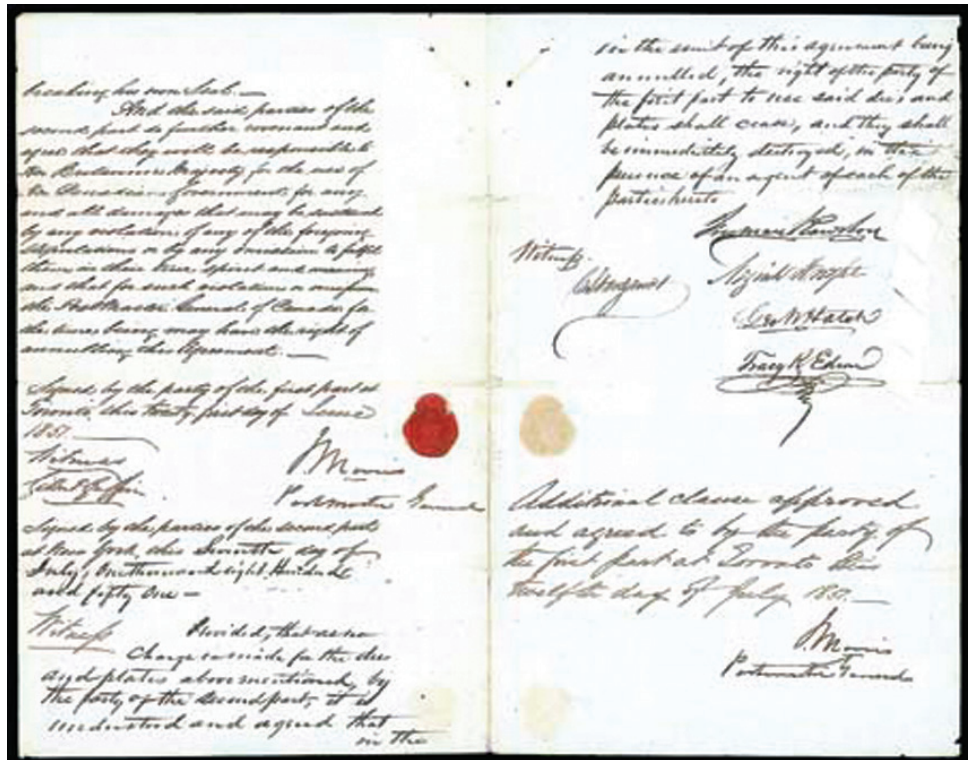 breaking his own Seal.—
And the said parties of the
second part do further covenant and
agree that they will be responsible to
Her Britannic Majesty for the use of
the Canadian Government for any
and all damages that may be sustained
by any violation of any of the foregoing
stipulations or by any omission to fulfil
them in their true spirit and meaning
and that for such violation or omission
the Post Master General of Canada for
the time being may have the right of
annulling this Agreement.—
Signed by the party of the first part at
Toronto, this twenty first day of June
1851.
Witness
Griffin
J Morris
Postmaster General
Signed by the parties of the second part
at New York, this Seventh day of
July, One thousand eight Hundred
and fifty One—
Witness
Provided, that as no
Charge is made for the dies
and plates above mentioned, by
the party of the second part, it is
understood and agreed that
in the
in the event of this agreement being
annulled, the right of the party of
the first part to use said dies and
plates shall cease, and they shall
be immediately destroyed, in the
presence of an agent of each of the
parties hereto
Witness.
Freeman Rawdon
Neziah Wright
Geo W Hatch
Tracy R Edson
Additional clause approved
and agreed to by the party of
the first part at Toronto this
twelfth day of July 1851.—
J Morris
Postmaster General